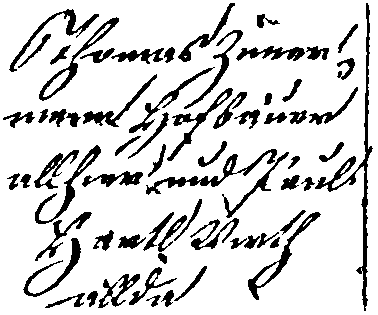 Thomas Zimer¬
man Hofbauer
allhier und Paul
Hartl Wirth
allda